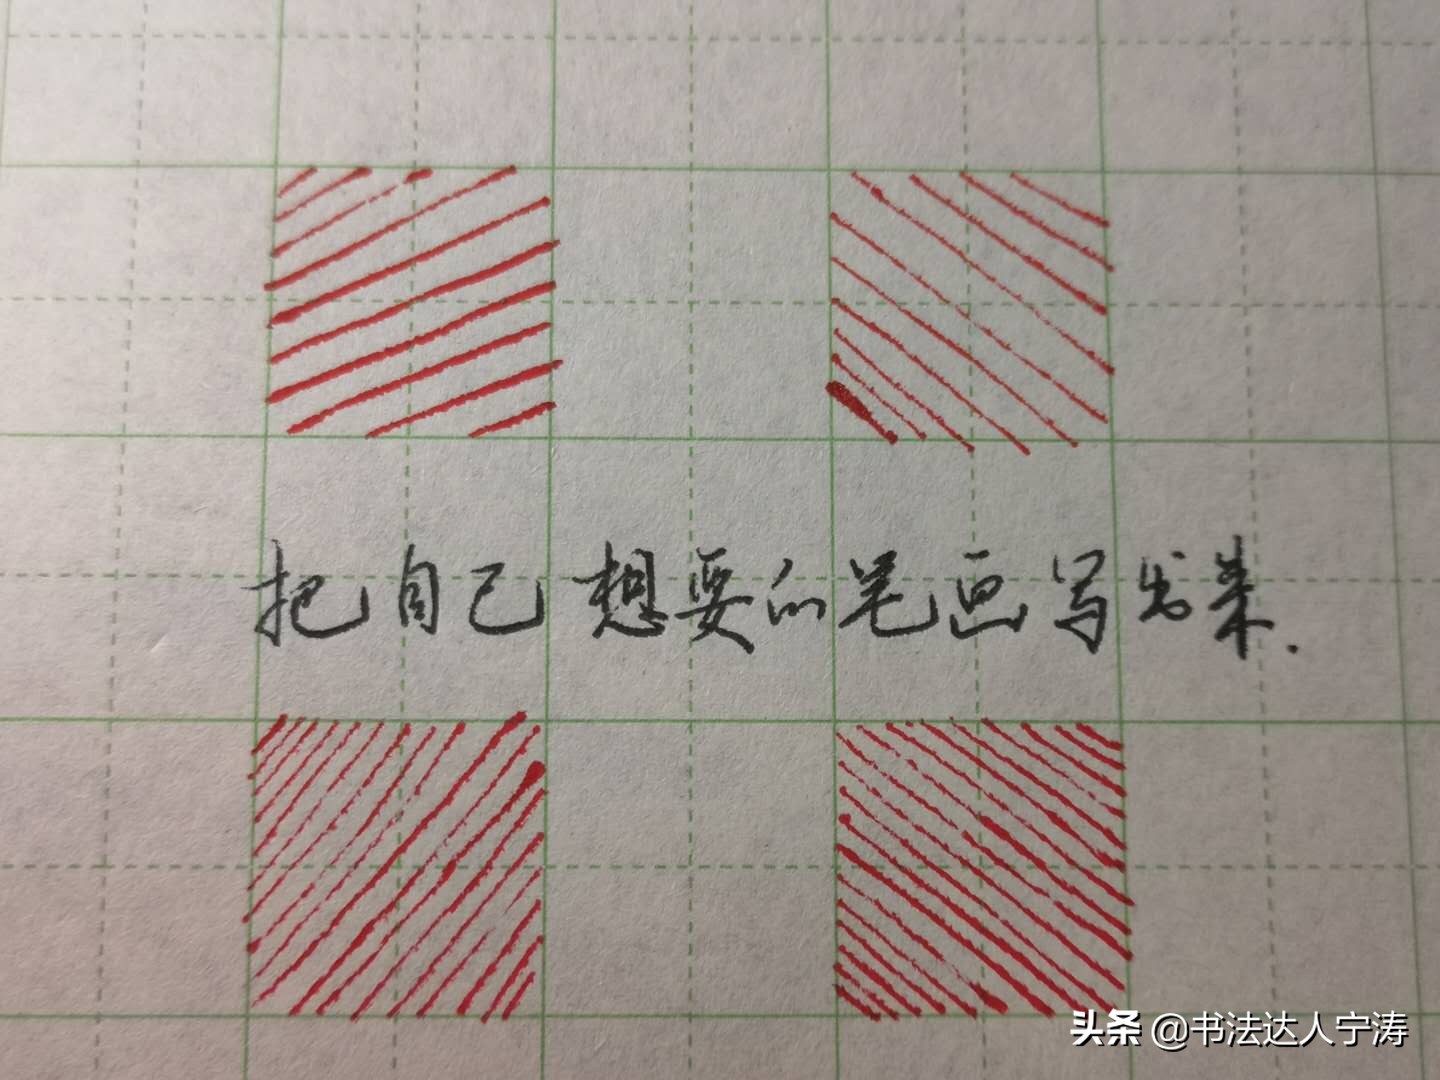 把自己想要的笔画写出来.
头条 @书法达人宁涛